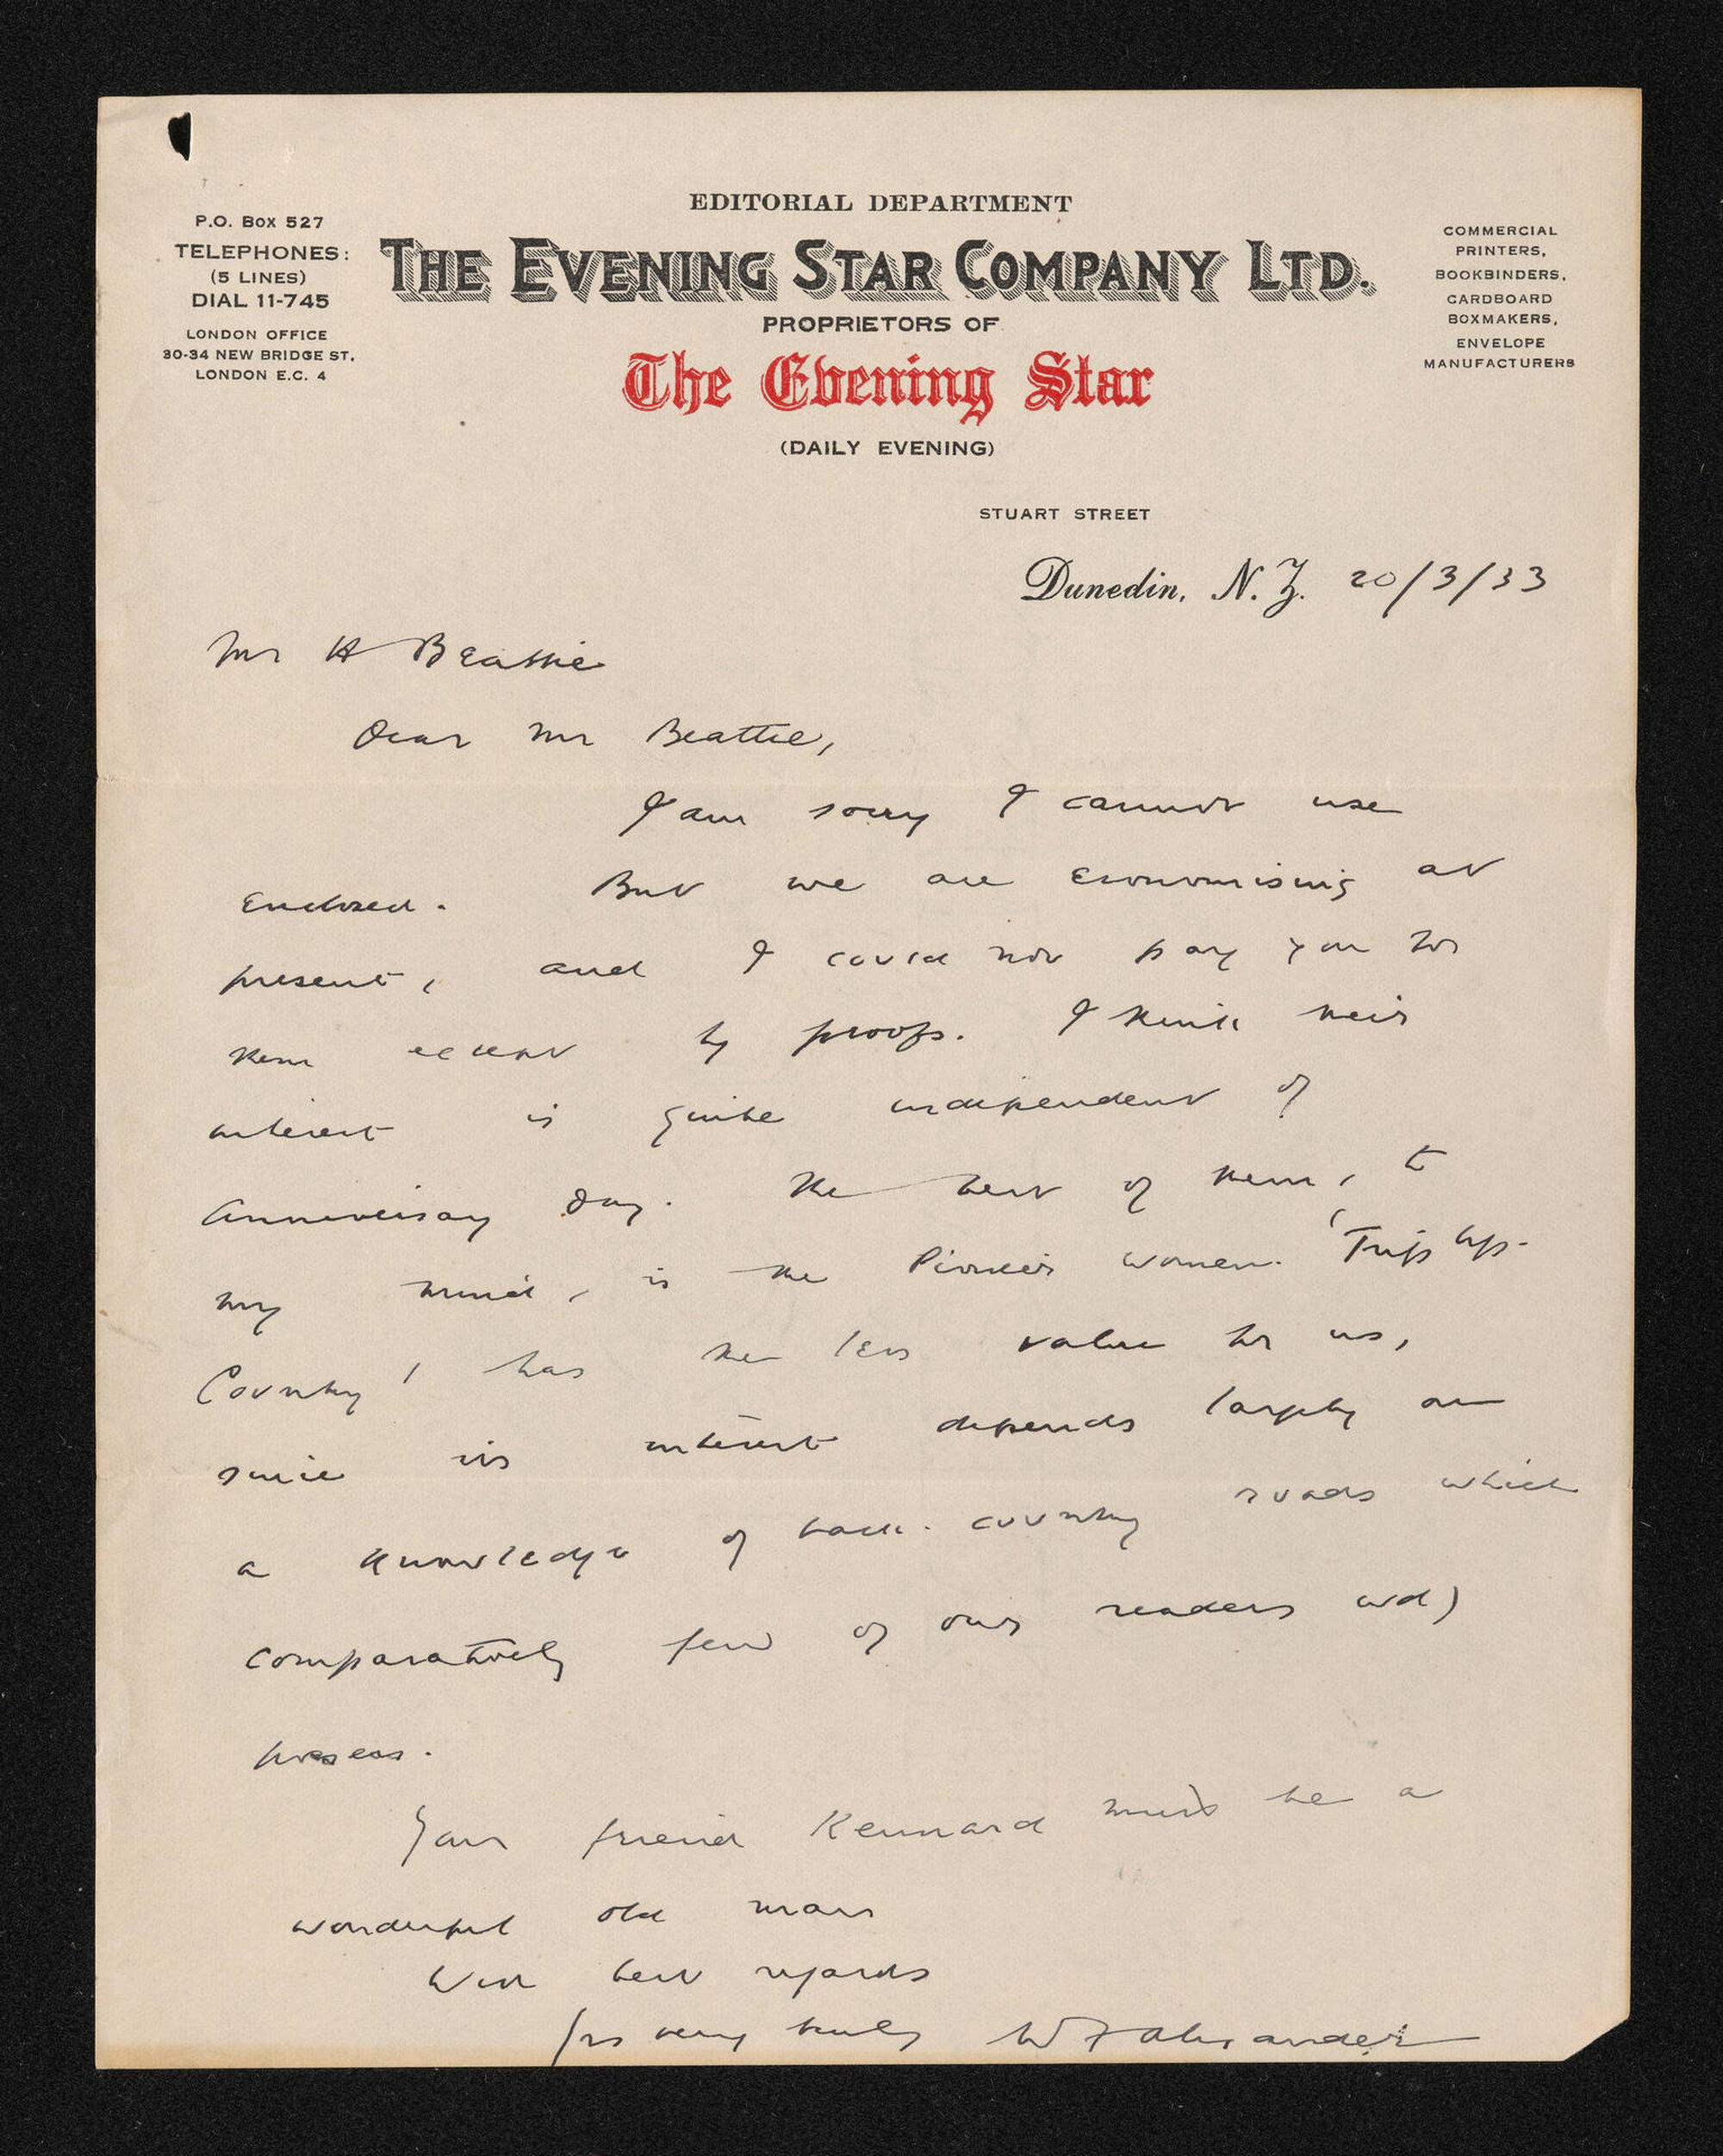 EDITORIAL DEPARTMENT
P.O. Box 527
TELEPHONES:
(5 LINES)
DIAL 11-745
LONDON OFFICE
30-34 NEW BRIDGE ST.
LONDON E.C. 4
THE EVENING STAR COMPANY LTD.
PROPRIETORS OF
The Evening Star
(DAILY EVENING)
COMMERCIAL
PRINTERS,
BOOKBINDERS,
CARDBOARD
BOXMAKERS,
ENVELOPE
MANUFACTURERS
STUART STREET
Dunedin, N.Z. 20/3/33
Mr H Beattie
Dear Mr Beattie,
I am sorry I cannot use
enclosed. But we are economising at
present, and I could not pay you for
them except by proofs. I think their
interest is quite independent of
Anniversary Day. The best of them, to
my mind, is the Pioneer women. 'Trips Up-
Country' has the less value for us,
since its interest depends largely on
a knowledge of back-country roads which
comparatively few of our readers wd)
possess.
Your friend Kennard must be a
wonderful old man
With best regards
Yrs very truly W F Alexander